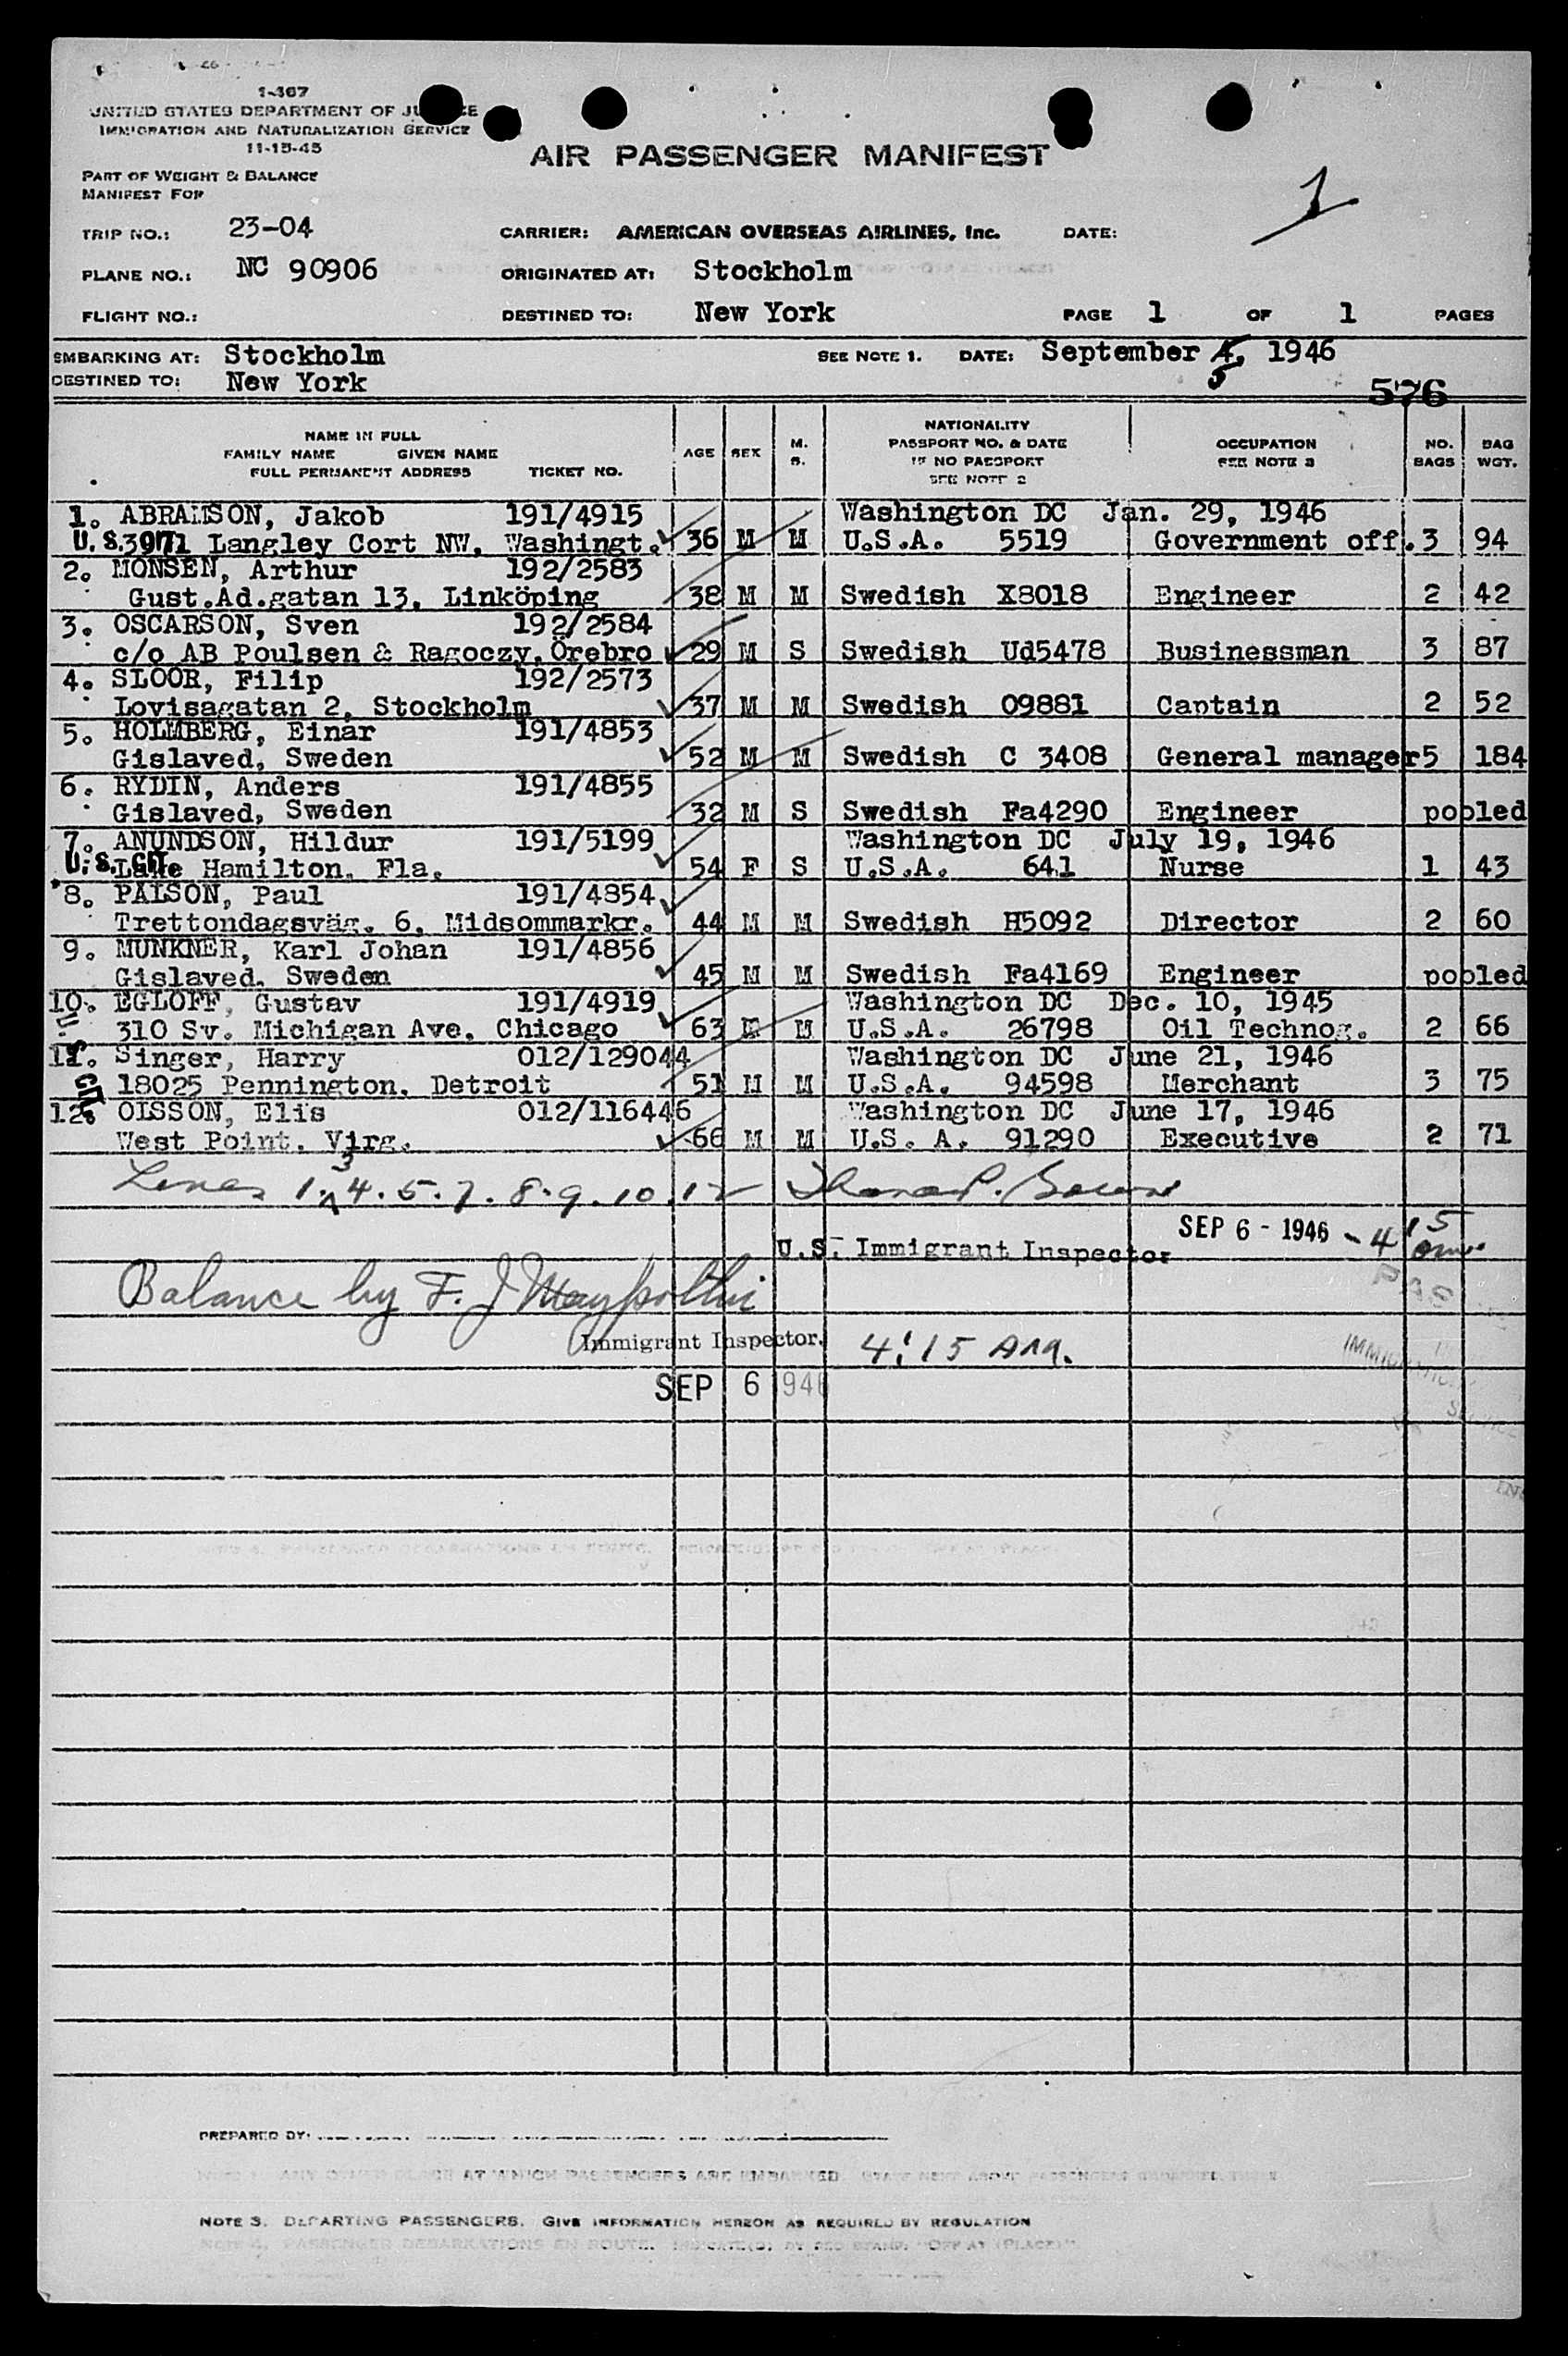 1-467
UNITED STATES DEPARTMENT OF JUSTICE
IMMIGRATION AND NATURALIZATION SERVICE
11-15-45
AIR PASSENGER MANIFEST
1
PART OF WEIGHT & BALANCE
MANIFEST FOR
TRIP NO.: 23-04 CARRIER: AMERICAN OVERSEAS AIRLINES, Inc. DATE:
PLANE NO.: NC 90906 ORIGINATED AT: Stockholm
FLIGHT NO.: DESTINED TO: New York PAGE 1 OF 1 PAGES
EMBARKING AT: Stockholm SEE NOTE 1. DATE: September 4, 1946
DESTINED TO: New York 5
576
NAME IN FULL
FAMILY NAME GIVEN NAME
FULL PERMANENT ADDRESS TICKET NO.
AGE SEX M. S.
NATIONALITY
PASSPORT NO. & DATE
IF NO PASSPORT
SEE NOTE 2
OCCUPATION
SEE NOTE 3
NO. BAGS
BAG WGT.
1. ABRAMSON, Jakob 191/4915 Washington DC Jan. 29, 1946
U.S. Langley Cort NW, Washingt. 36 M M U.S.A. 5519 Government off. 3 94
2. MONSEN, Arthur 192/2583
Gust.Ad.gatan 13, Linköping 38 M M Swedish X8018 Engineer 2 42
3. OSCARSON, Sven 192/2584
c/o AB Poulsen & Ragoczy, Örebro 29 M S Swedish Ud5478 Businessman 3 87
4. SLOOR, Filip 192/2573
Lovisagatan 2, Stockholm 37 M M Swedish 09881 Captain 2 52
5. HOLMBERG, Einar 191/4853
Gislaved, Sweden 52 M M Swedish C 3408 General manager 5 184
6. RYDIN, Anders 191/4855
Gislaved, Sweden 32 M S Swedish Fa4290 Engineer pooled
7. ANUNDSON, Hildur 191/5199 Washington DC July 19, 1946
U.S. CIT. Lake Hamilton, Fla. 54 F S U.S.A. 641 Nurse 1 43
8. PALSON, Paul 191/4854
Trettondagsväg. 6, Midsommarkr. 44 M M Swedish H5092 Director 2 60
9. MUNKNER, Karl Johan 191/4856
Gislaved, Sweden 45 M M Swedish Fa4169 Engineer pooled
10. EGLOFF, Gustav 191/4919 Washington DC Dec. 10, 1945
310 Sv. Michigan Ave, Chicago 63 M M U.S.A. 26798 Oil Technog. 2 66
11. Singer, Harry 012/129044 Washington DC June 21, 1946
18025 Pennington, Detroit 51 M M U.S.A. 94598 Merchant 3 75
12. OISSON, Elis 012/116446 Washington DC June 17, 1946
West Point, Virg. 66 M M U.S. A. 91290 Executive 2 71
Lines 1. 3 4. 5. 7. 8. 9. 10. 12
SEP 6 - 1946 - 4 15
U.S. Immigrant Inspector
Balance by F. J.
Immigrant Inspector. 4:15 AM.
SEP 6 1946
PREPARED BY:
AT WHICH PASSENGERS ARE EMBARKED.
NOTE 3. DEPARTING PASSENGERS. GIVE INFORMATION HEREON AS REQUIRED BY REGULATION
NOTE 4. PASSENGER DEBARKATIONS EN ROUTE. INDICATE(D) BY RED STAMP: "OFF AT (PLACE)"